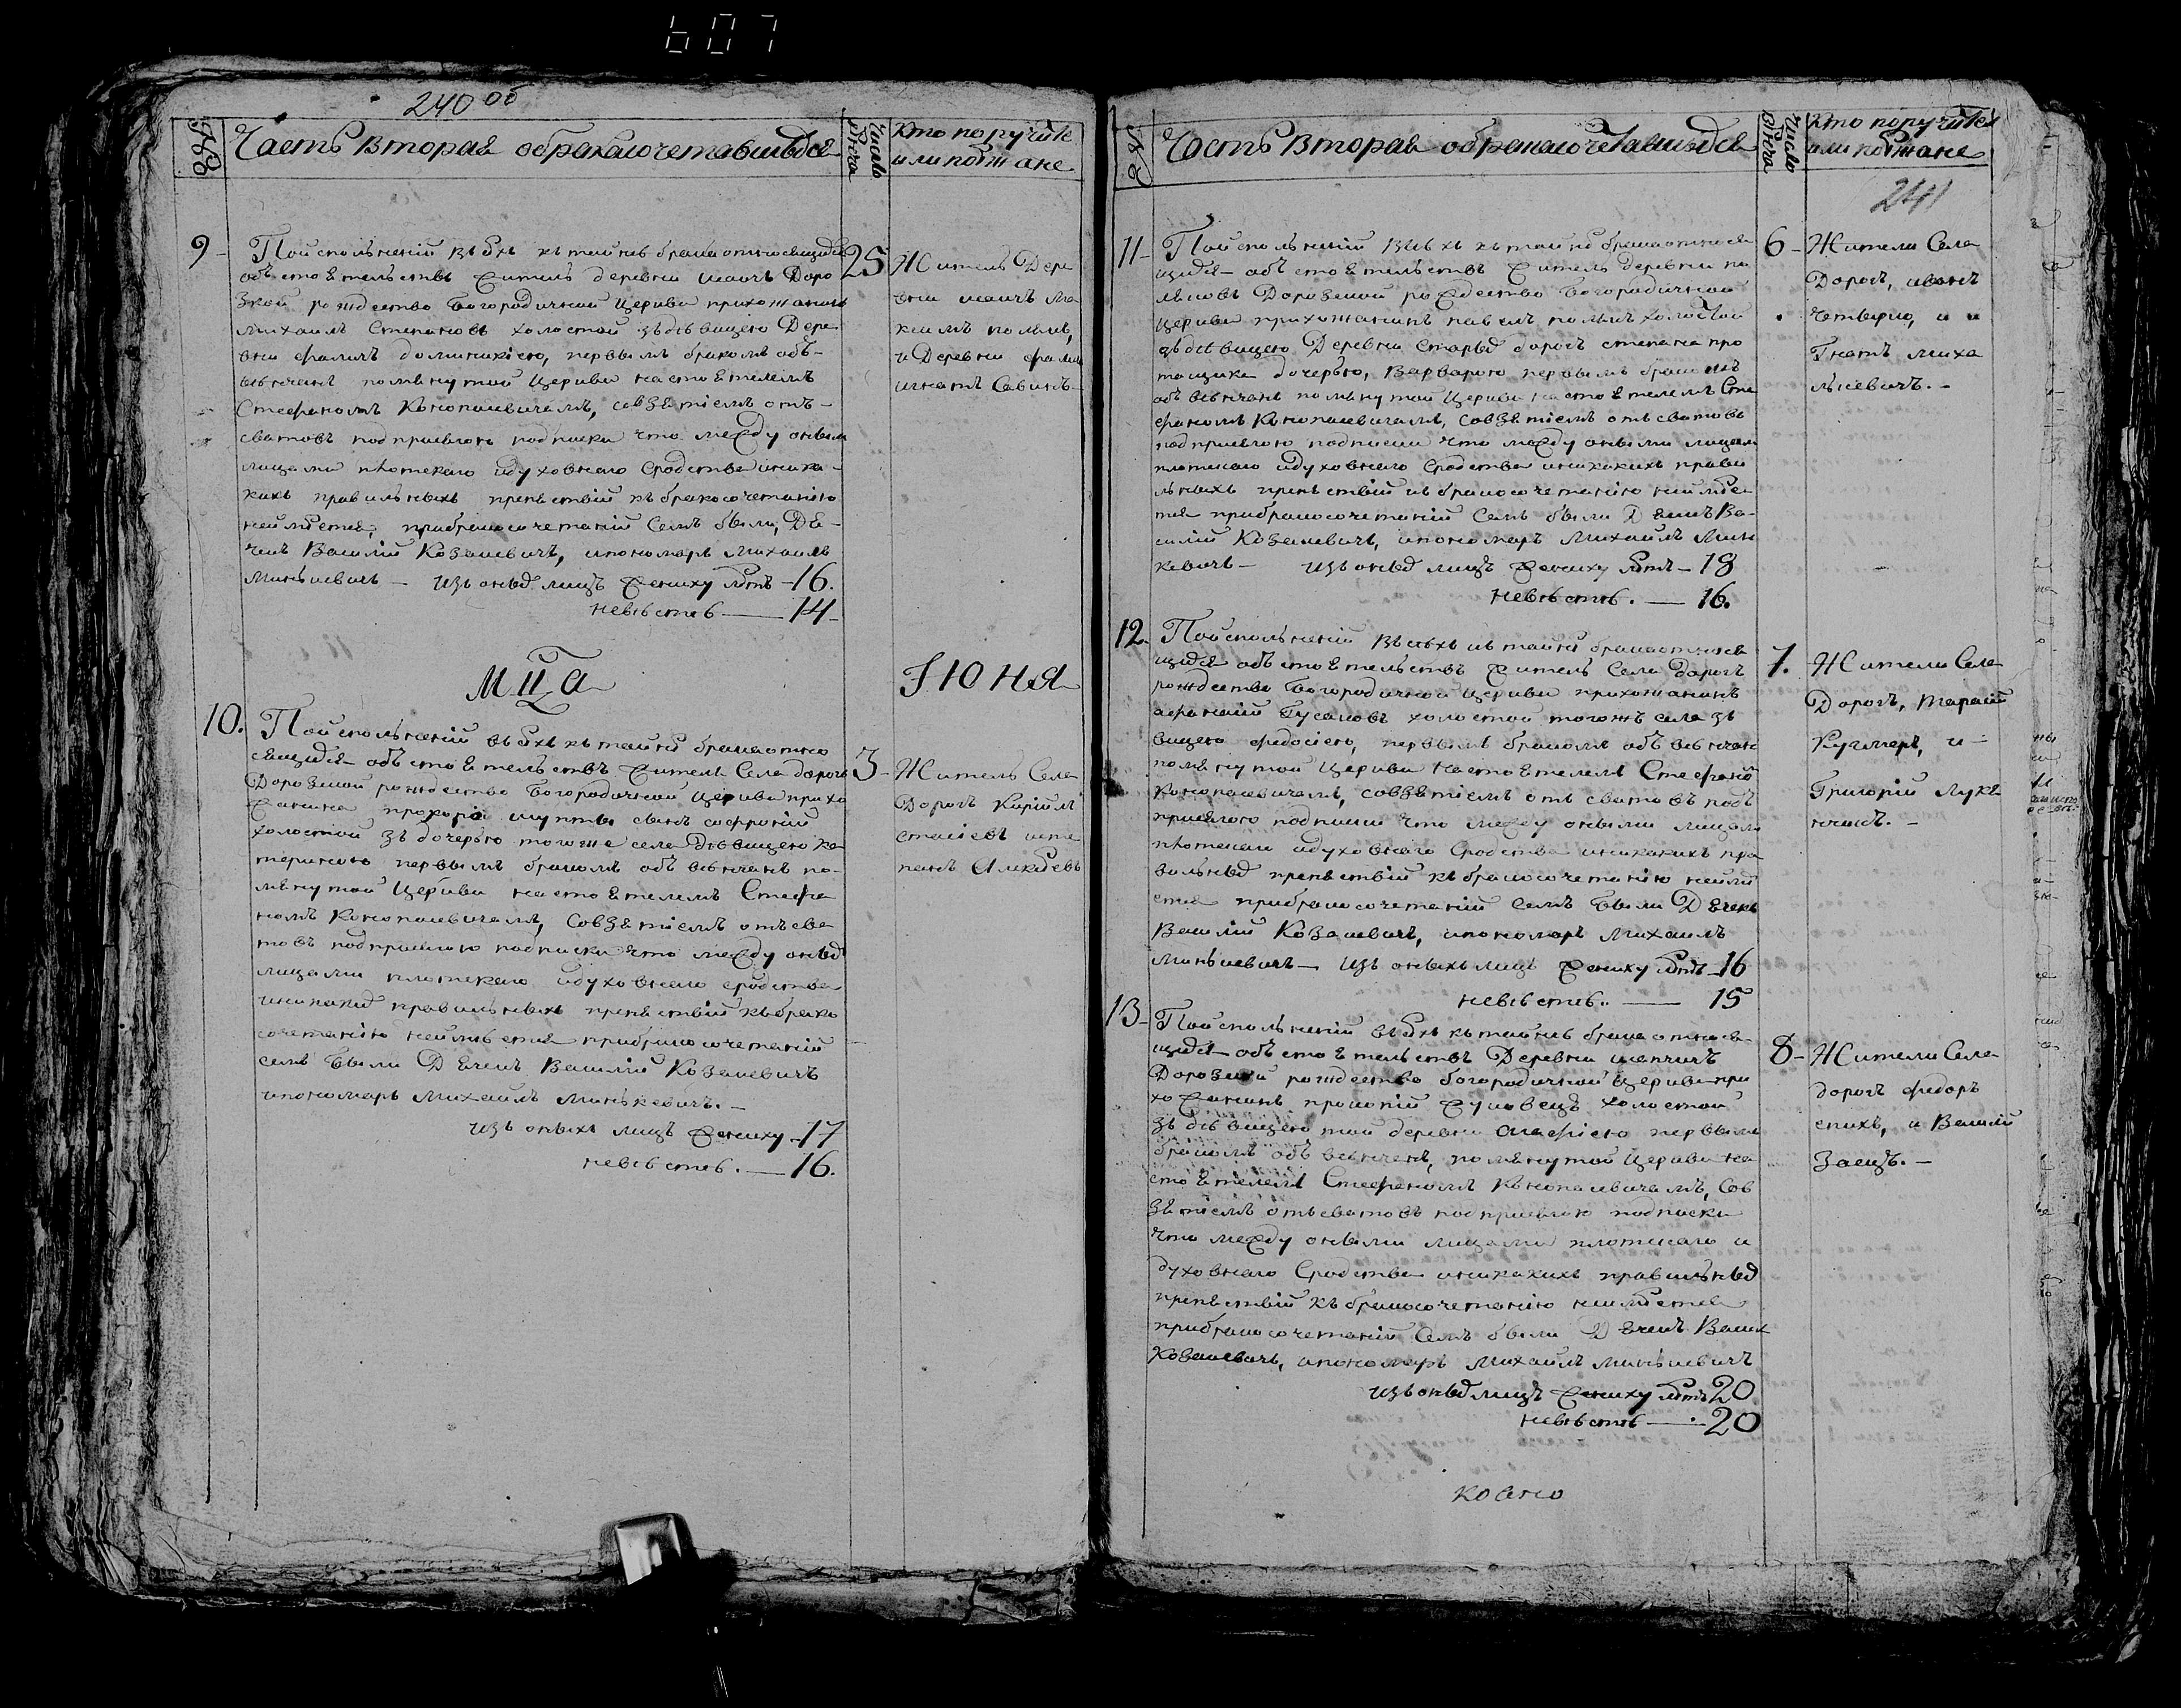 607
240 об
№
Часть вторая о бракасочетавшихся
Число венча
Кто поручите или поезжане
9
По исполнении всѣхъ къ тайнѣ брака относящихся
обстоятельствъ житель деревни Доро
зкой рождество Богородичной церкви прихожанинъ
Михаилъ Степановъ холостой зъ дѣвицею Дере
вни доминикіею, первымъ бракомъ объ-
вѣнчанъ помянутой церкви настоятелемъ
Стефаномъ Конопацевичемъ, совзятіемъ отъ
сватовъ подприсягою подписки что между оными
лицами плотскаго идуховнаго сродства иника-
кихъ правильныхъ препятствій къ бракосочетанію
неимѣется, прибракосочетаніи семъ были, Дя-
чекъ Василій Козакевичъ, ипономарь Михаилъ
Минькевичъ — изъ оныхъ лицъ жениху лѣтъ — 16.
невѣстѣ — 14
25
Житель Дере
вни
и Деревни
игнатъ Савинъ
Мца Іюня
10.
По исполненіи всѣхъ къ тайнѣ брака отно
сящихся обстоятельствъ жителя Села дорогъ
Дорозкой рождество Богородичной церкви прихо
жанина прохора сынъ софроній
холостой зъ дочерью тогоже села Дѣвицею ка
териною первымъ бракомъ объвѣнчанъ по-
мянутой церкви настоятелемъ Стефа
номъ Конопацевичемъ, совзятіемъ отъ сва
товъ подприсягою подписки что между оныхъ
лицами плотскаго идуховнаго сродства
иникакихъ правильныхъ препятствій къ брако
сочетанію неимѣется прибракосочетаніи
семъ были Дячекъ Василій Козакевичъ
ипономарь Михаилъ Минькевичъ. —
изъ оныхъ лицъ жениху — 17
невѣстѣ. — 16.
3
Житель Села
Дорогъ Кирилъ
№
Часть вторая о бракасочетавшихся
Число венча
Кто поручител или поезжане
241
11
По исполненіи всѣхъ къ тайнѣ брака относя
щихся обстоятельствъ житель деревни по
Дорозкой рождество Богородичной
церкви прихожанинъ павелъ холостой
зъ дѣвицею Деревни Старыхъ дорогъ степана про
тащика дочерью, варварою первымъ бракомъ
объвѣнчанъ помянутой церкви настоятелемъ Сте
фаномъ Конопацевичемъ, совзятіемъ отъ сватовъ
подприсягою подписки что между оными лицами
плотскаго идуховнаго сродства иникакихъ прави
льныхъ препятствій къ бракосочетанію неимѣе
тся прибракосочетаніи семъ были Дячекъ Ва-
силій Козакевичъ, ипономарь Михаилъ Минь
кевичъ — изъ оныхъ лицъ жениху лѣтъ — 18
невѣстѣ. — 16.
6
Жители Села
Дорогъ, иванъ
четвирко, и и
Гнатъ миха
лкевичъ. —
12.
По исполненіи всѣхъ къ тайнѣ брака относя
щихся обстоятельствъ житель Села дорогъ
рождество Богородичной церкви прихожанинъ
афанасій Гусаковъ холостой тогожъ села зъ дѣ
вицею федосіею, первымъ бракомъ объвѣнчанъ
помянутой церкви настоятелемъ Стефаномъ
Конопацевичемъ, совзятіемъ отъ сватовъ подъ
присягою подписки что между оными лицами
плотскаго идуховнаго сродства иникакихъ пра
вильныхъ препятствій къ бракосочетанію неимѣ
ется прибракосочетаніи семъ были Дячекъ
Василій Козакевичъ, ипономарь Михаилъ
Минькевичъ — изъ оныхъ лицъ жениху лѣтъ — 16
невѣстѣ. — 15
7.
Жители Села
Дорогъ, тарасій
и
Григорій
13
По исполненіи всѣхъ къ тайнѣ брака относя-
щихся обстоятельствъ Деревни шапчицъ
Дорозкой рождество богородичной церкви при
хожанинъ прокопій холостой
зъ дѣвицею той деревни агафіею первымъ
бракомъ объвѣнчанъ, помянутой церкви на
стоятелемъ Стефаномъ Конопацевичемъ, сов
зятіемъ отъ сватовъ подприсягою подписки
что между оными лицами плотскаго и
духовнаго сродства иникакихъ правильныхъ
препятствій къ бракосочетанію неимѣется
прибракосочетаніи семъ были Дячекъ Васил
Козакевичъ, ипономарь Михаилъ Минькевичъ
изъ оныхъ лицъ жениху лѣтъ 20
невѣстѣ — 20
8
Жители Села
дорогъ федоръ
и Василій
Заецъ. —